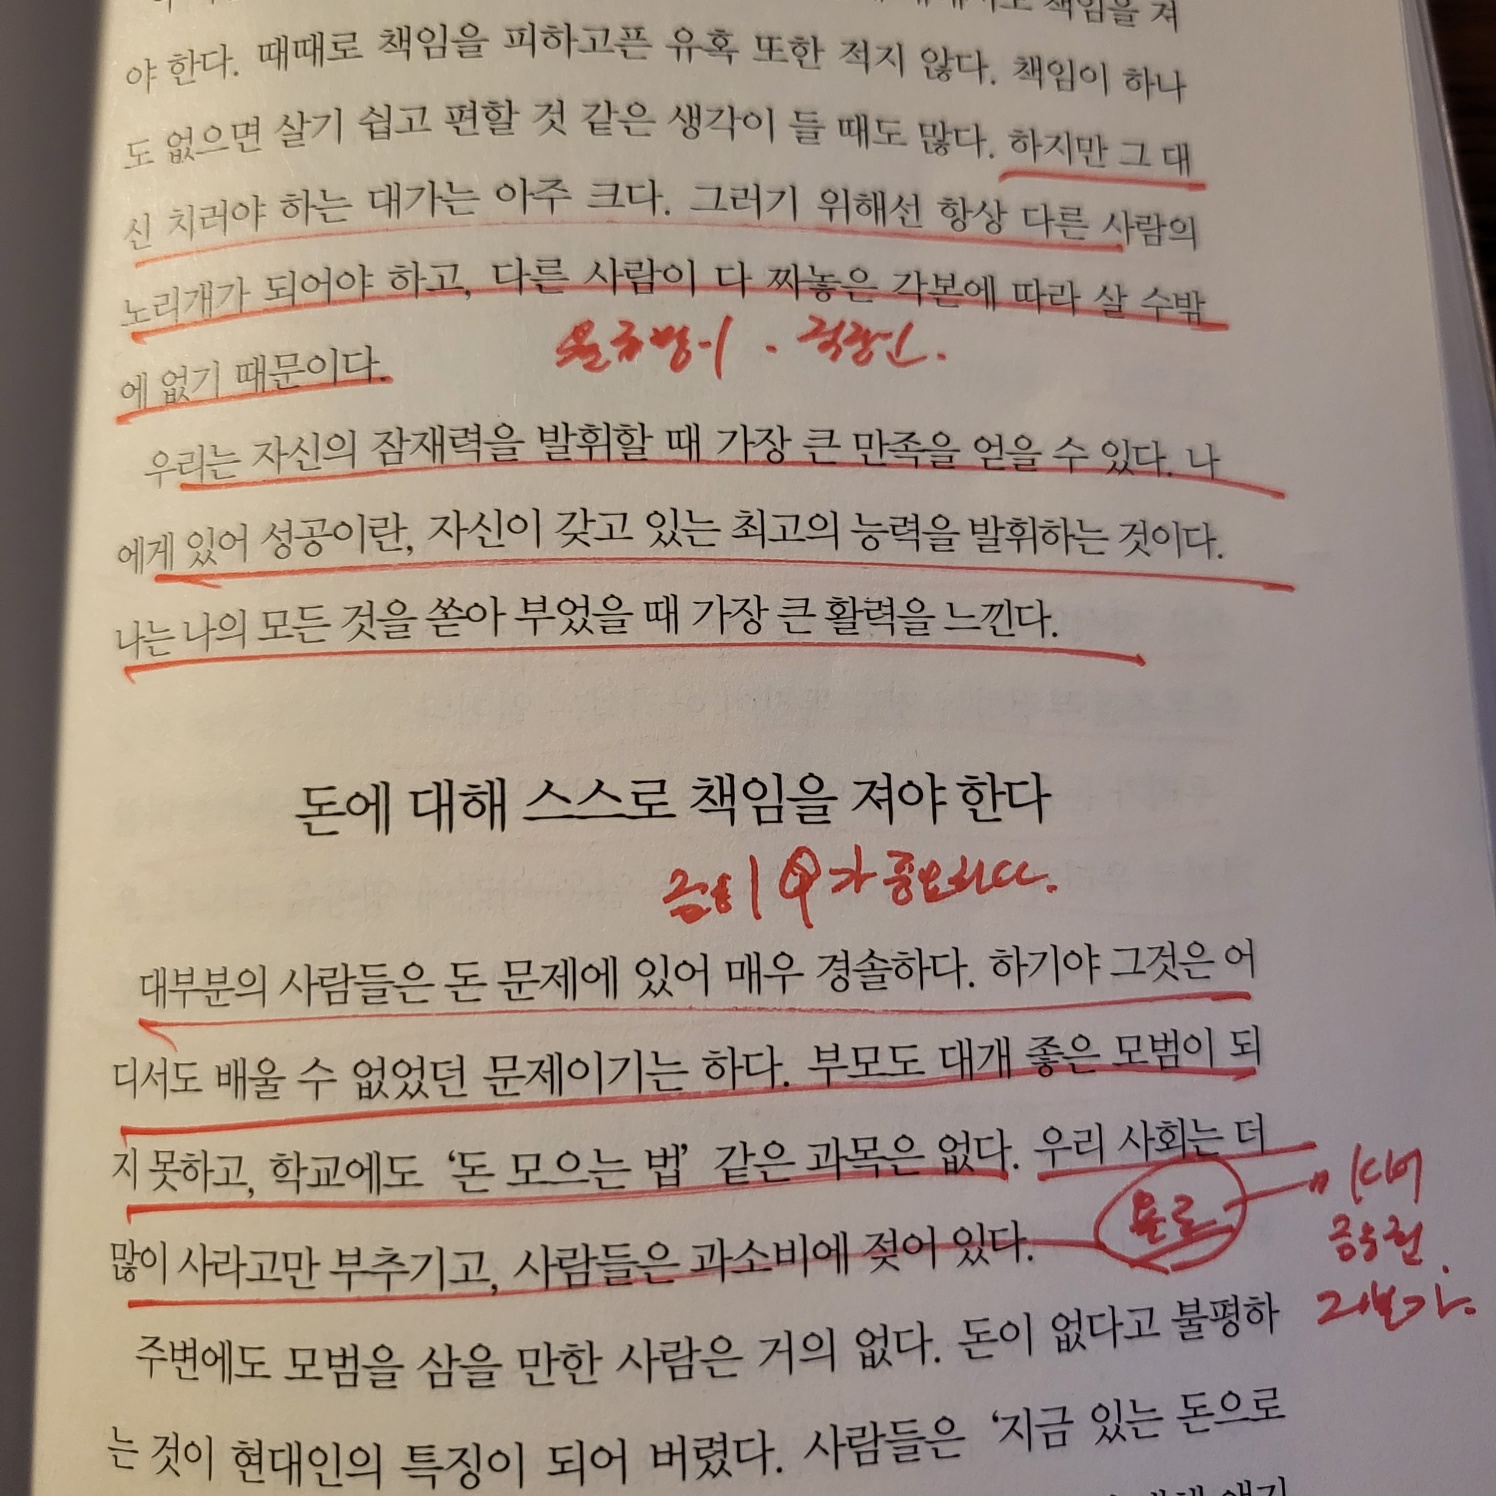 책임을 져
야 한다. 때때로 책임을 피하고픈 유혹 또한 적지 않다. 책임이 하나
도 없으면 살기 쉽고 편할 것 같은 생각이 들 때도 많다. 하지만 그 대
신 치러야 하는 대가는 아주 크다. 그러기 위해선 항상 다른 사람의
노리개가 되어야 하고, 다른 사람이 다 짜놓은 각본에 따라 살 수밖
에 없기 때문이다.
월급쟁이. 직장인.
우리는 자신의 잠재력을 발휘할 때 가장 큰 만족을 얻을 수 있다. 나
에게 있어 성공이란, 자신이 갖고 있는 최고의 능력을 발휘하는 것이다.
나는 나의 모든 것을 쏟아 부었을 때 가장 큰 활력을 느낀다.
돈에 대해 스스로 책임을 져야 한다
금융 IQ가 중요하다.
대부분의 사람들은 돈 문제에 있어 매우 경솔하다. 하기야 그것은 어
디서도 배울 수 없었던 문제이기는 하다. 부모도 대개 좋은 모범이 되
지 못하고, 학교에도 ‘돈 모으는 법’ 같은 과목은 없다. 우리 사회는 더
많이 사라고만 부추기고, 사람들은 과소비에 젖어 있다.
욜로
주변에도 모범을 삼을 만한 사람은 거의 없다. 돈이 없다고 불평하
는 것이 현대인의 특징이 되어 버렸다. 사람들은 ‘지금 있는 돈으로